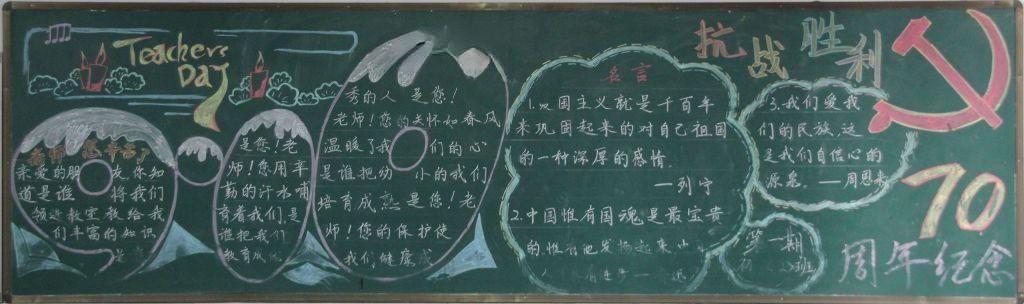 Teachers
Day
老师您辛苦了
亲爱的朋友,你知
道是谁 将我们
领进教室教给我
们丰富的知识
是您!老
师!您用辛
勤的汗水哺
育着我们是
谁把我们
教育成
秀的人 是您!
老师!您的关怀如春风
温暖了我 们的心
是谁把幼 小的我们
培育成熟是您!老
师!您的保护使
我们健康成
名言
1.爱国主义就是千百年
来巩固起来的对自己祖国
的一种深厚的感情。
—列宁
2.中国惟有国魂是最宝贵
的惟有他发扬起来
抗战胜利
3.我们爱我
们的民族,这
是我们自信心的
源泉。—周恩来
第一期
班
70
周年纪念